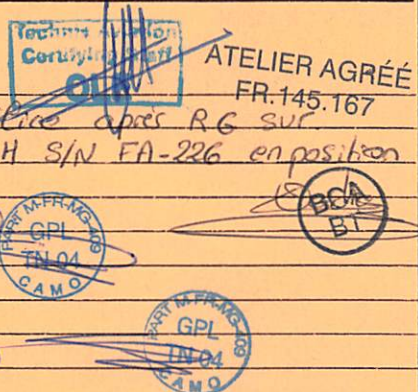 Certifying Staff
ATELIER AGRÉÉ
FR.145.167
après RG sur
H S/N FA-226 en position
BCA
BT
PART M-FR-MG-409
GPL
TN-04
CAMO
PART M-FR-MG-409
GPL
TN-04
CAMO